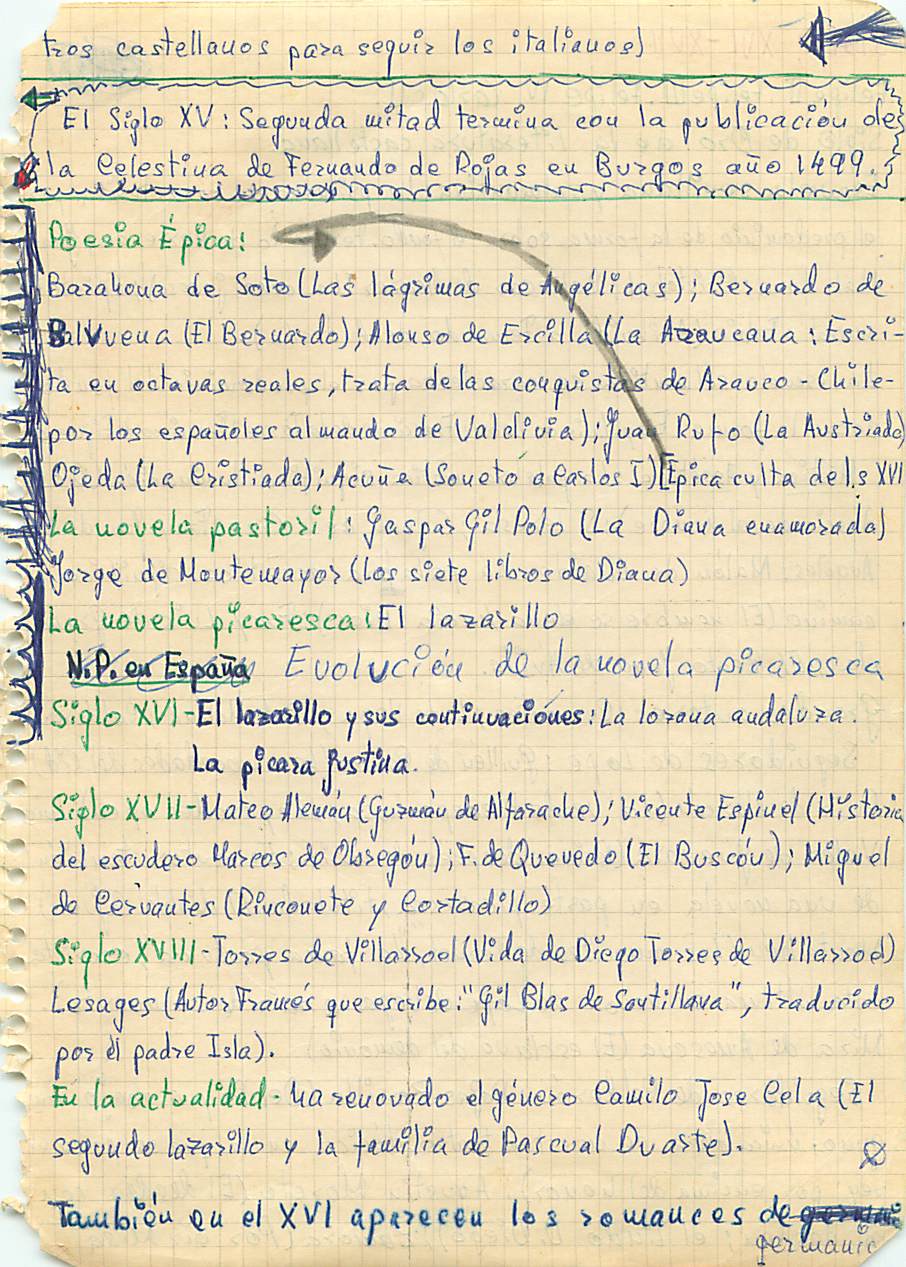 tros castellanos para seguir los italianos)
El Siglo XV: Segunda mitad termina con la publicación de
la Celestina de Fernando de Rojas en Burgos año 1499.
Poesía Épica:
Barahona de Soto (Las lágrimas de Angélicas); Bernardo de
Balvuena (El Bernardo); Alonso de Ercilla (La Araucana: Escri-
ta en octavas reales, trata de las conquistas de Arauco - Chile-
por los españoles al mando de Valdivia); Juan Rufo (La Austriada)
Ojeda (La Cristiada); Acuña (Soneto a Carlos I) [Épica culta del s XVI
La novela pastoril: Gaspar Gil Polo (La Diana enamorada)
Jorge de Montemayor (Los siete libros de Diana)
La novela picaresca: El lazarillo
N.P. en España Evolución de la novela picaresca
Siglo XVI - El lazarillo y sus continuaciones: La lozana andaluza.
La pícara Justina.
Siglo XVII - Mateo Alemán (Guzmán de Alfarache); Vicente Espinel (Historia
del escudero Marcos de Obregón); F. de Quevedo (El Buscón); Miguel
de Cervantes (Rinconete y Cortadillo)
Siglo XVIII - Torres de Villarroel (Vida de Diego Torres de Villarroel)
Lesages (Autor Francés que escribe: "Gil Blas de Santillana", traducido
por el padre Isla).
En la actualidad - ha renovado el género Camilo Jose Cela (El
segundo lazarillo y la familia de Pascual Duarte).
También en el XVI aparecen los romances de
germanía